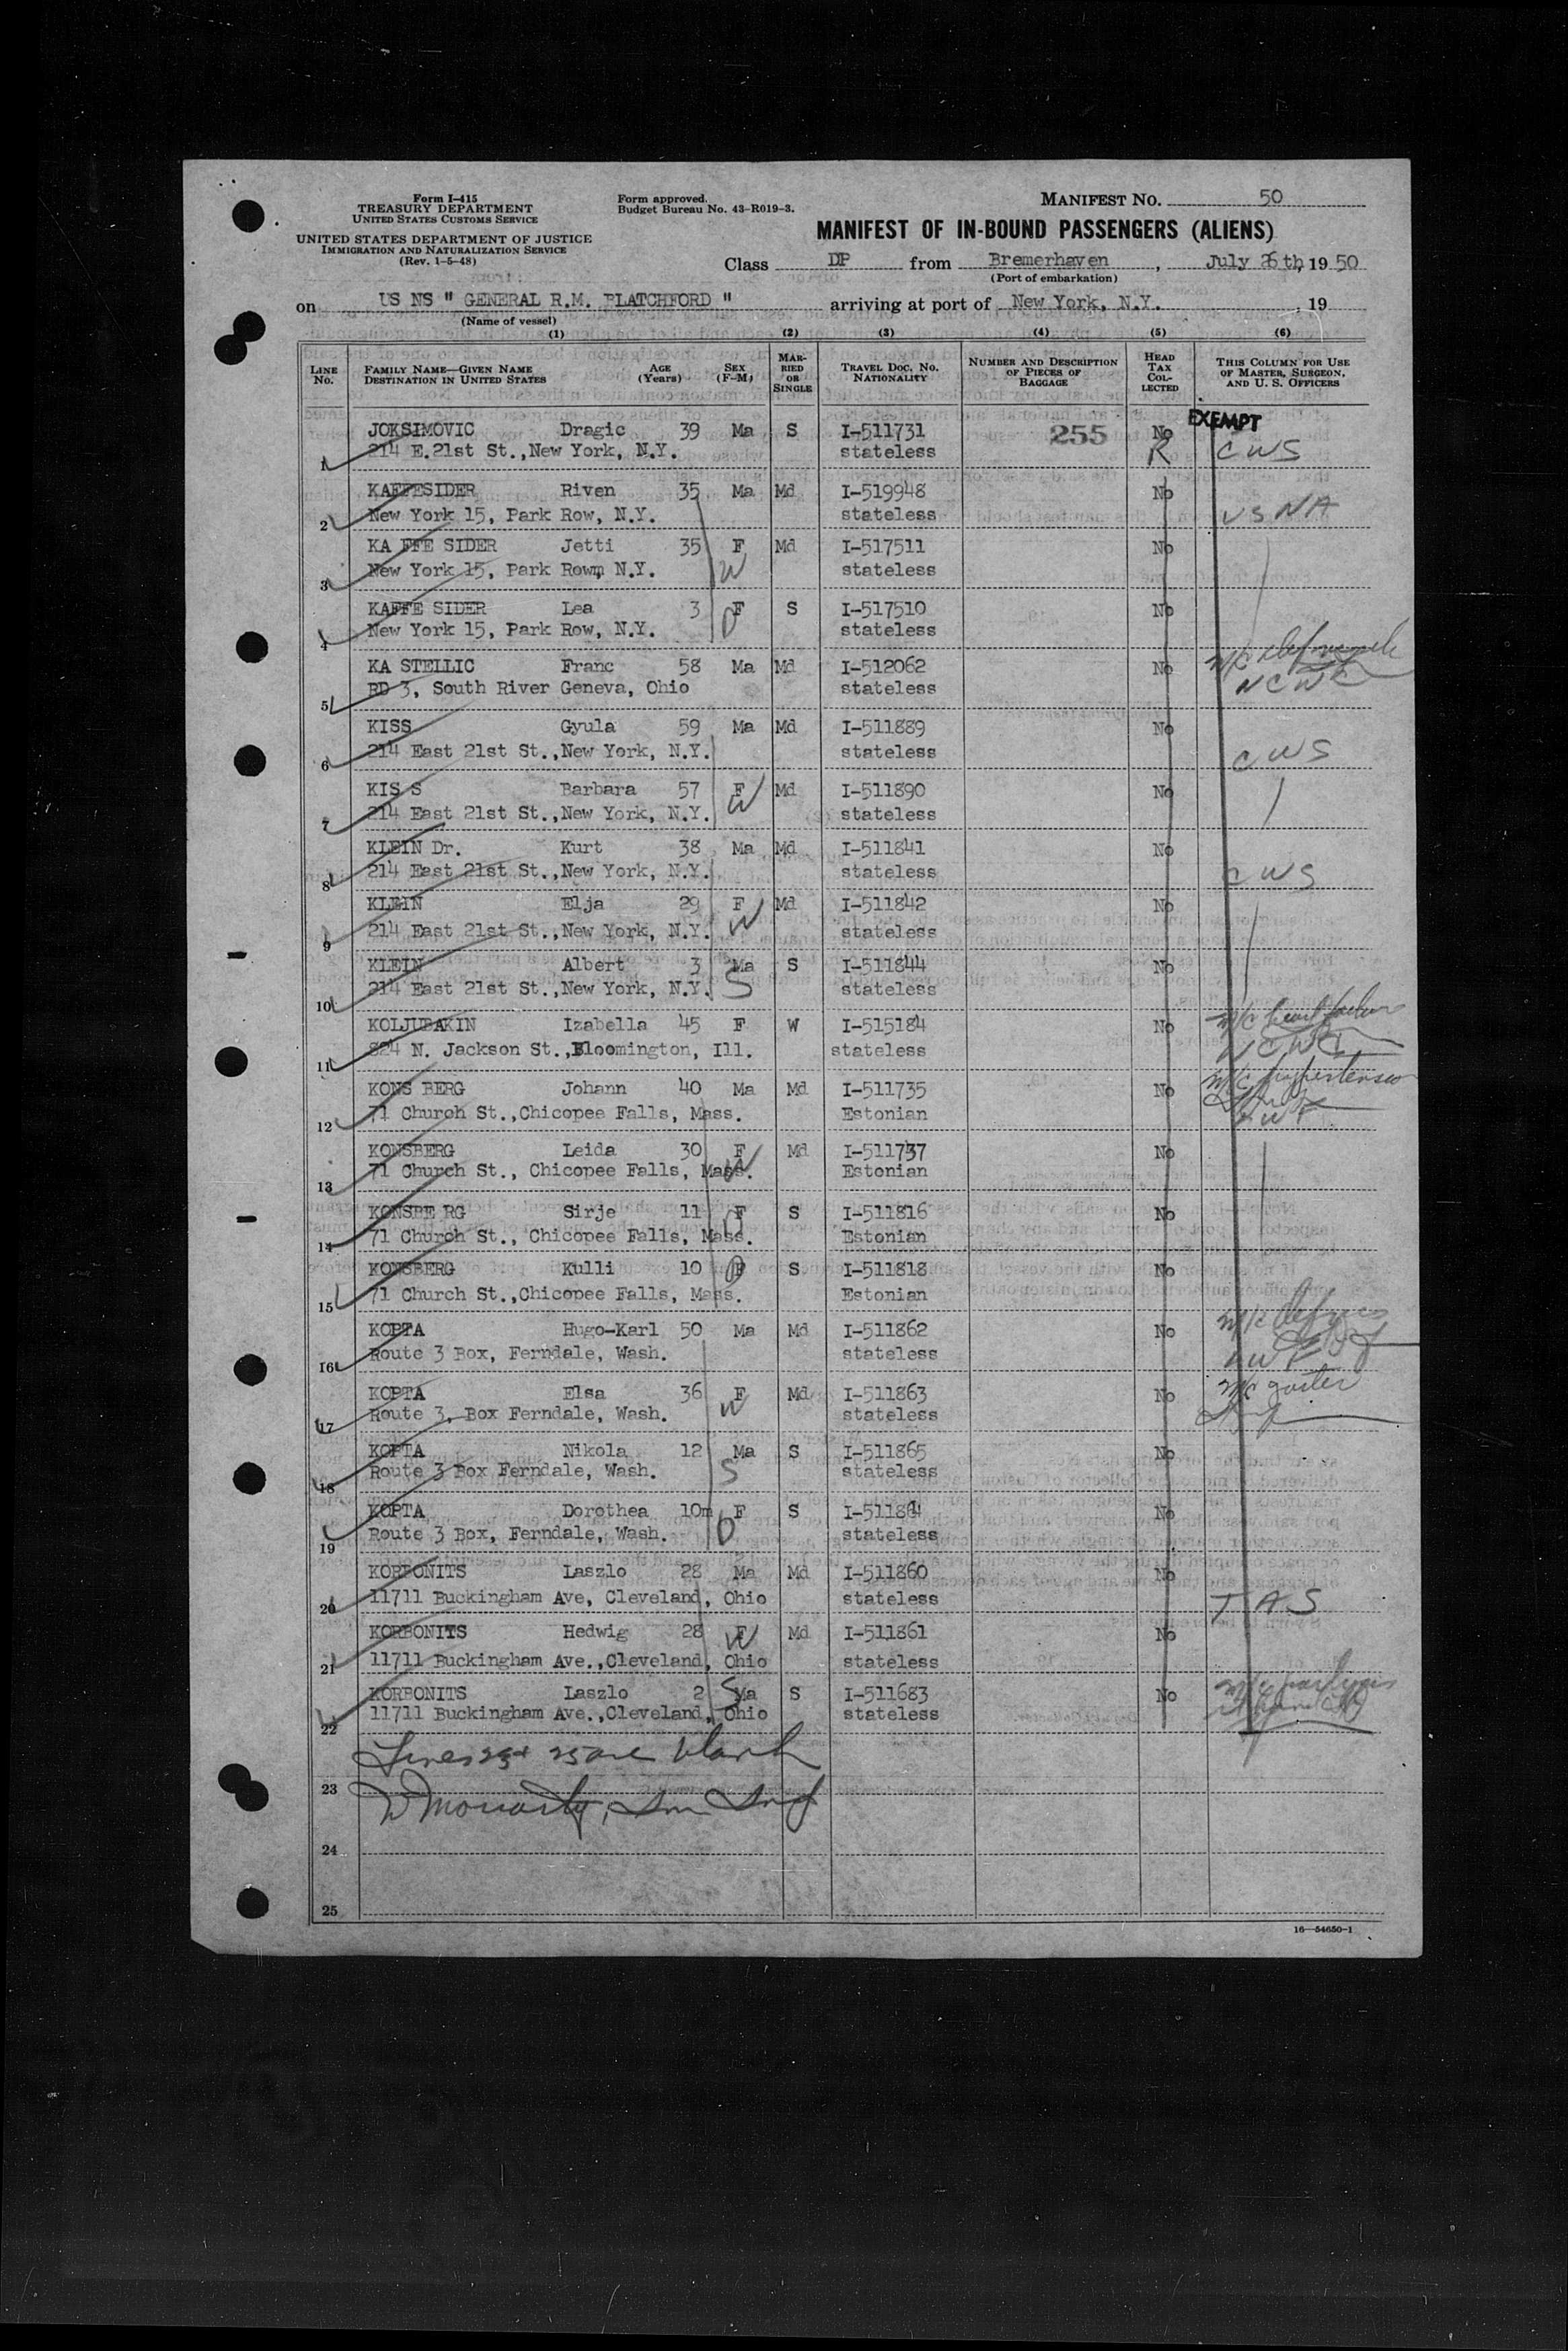 Form I-415
TREASURY DEPARTMENT
UNITED STATES CUSTOMS SERVICE
UNITED STATES DEPARTMENT OF JUSTICE
IMMIGRATION AND NATURALIZATION SERVICE
(Rev. 1-5-48)
Form approved.
Budget Bureau No. 43-R019-3.
MANIFEST NO. 50
MANIFEST OF IN-BOUND PASSENGERS (ALIENS)
Class DP from Bremerhaven, July 26th, 19 50
(Port of embarkation)
on US NS " GENERAL R.M. BLATCHFORD " arriving at port of New York, N.Y. , 19
(Name of vessel)
(1) (2) (3) (4) (5) (6)
LINE NO. FAMILY NAME—GIVEN NAME DESTINATION IN UNITED STATES AGE (Years) SEX (F-M) MARRIED OR SINGLE TRAVEL DOC. NO. NATIONALITY NUMBER AND DESCRIPTION OF PIECES OF BAGGAGE HEAD TAX COLLECTED THIS COLUMN FOR USE OF MASTER, SURGEON, AND U. S. OFFICERS
EXEMPT
JOKSIMOVIC Dragic 39 Ma S I-511731 255 No
1 214 E.21st St.,New York, N.Y. stateless R CWS
KAFFESIDER Riven 35 Ma Md I-519948 No
2 New York 15, Park Row, N.Y. stateless USNA
KA FFE SIDER Jetti 35 F Md I-517511 No
3 New York 15, Park Rowm N.Y. W stateless
KAFFE SIDER Lea 3 F S I-517510 No
4 New York 15, Park Row, N.Y. D stateless
KA STELLIC Franc 58 Ma Md I-512062 No
5 RD 3, South River Geneva, Ohio stateless NCWC
KISS Gyula 59 Ma Md I-511889 No
6 214 East 21st St.,New York, N.Y. stateless CWS
KIS S Barbara 57 F Md I-511890 No
7 214 East 21st St.,New York, N.Y. W stateless
KLEIN Dr. Kurt 38 Ma Md I-511841 No
8 214 East 21st St.,New York, N.Y. stateless CWS
KLEIN Elja 29 F Md I-511842 No
9 214 East 21st St.,New York, N.Y. W stateless
KLEIN Albert 3 Ma S I-511844 No
10 214 East 21st St.,New York, N.Y. S stateless
KOLJUBAKIN Izabella 45 F W I-515184 No
11 824 N. Jackson St.,Bloomington, Ill. stateless NCWC
KONS BERG Johann 40 Ma Md I-511735 No M/C hypertension
12 71 Church St.,Chicopee Falls, Mass. Estonian LWF
KONSBERG Leida 30 F Md I-511737 No
13 71 Church St., Chicopee Falls, Mass. W Estonian
KONSBE RG Sirje 11 F S I-511816 No
14 71 Church St., Chicopee Falls, Mass. D Estonian
KONSBERG Kulli 10 F S I-511818 No
15 71 Church St.,Chicopee Falls, Mass. Estonian
KOPTA Hugo-Karl 50 Ma Md I-511862 No
16 Route 3 Box, Ferndale, Wash. stateless LWF
KOPTA Elsa 36 F Md I-511863 No M/C goiter
17 Route 3, Box Ferndale, Wash. W stateless
KOPTA Nikola 12 Ma S I-511865 No
18 Route 3 Box Ferndale, Wash. S stateless
KOPTA Dorothea 10m F S I-511864 No
19 Route 3 Box, Ferndale, Wash. D stateless
KORBONITS Laszlo 28 Ma Md I-511860 No
20 11711 Buckingham Ave, Cleveland, Ohio stateless TAS
KORBONITS Hedwig 28 F Md I-511861 No
21 11711 Buckingham Ave.,Cleveland, Ohio W stateless
KORBONITS Laszlo 2 Ma S I-511683 No
22 11711 Buckingham Ave.,Cleveland, Ohio S stateless
Lines 23 + 25 are blank
23
W Moriarty,
24
25
16—54650-1